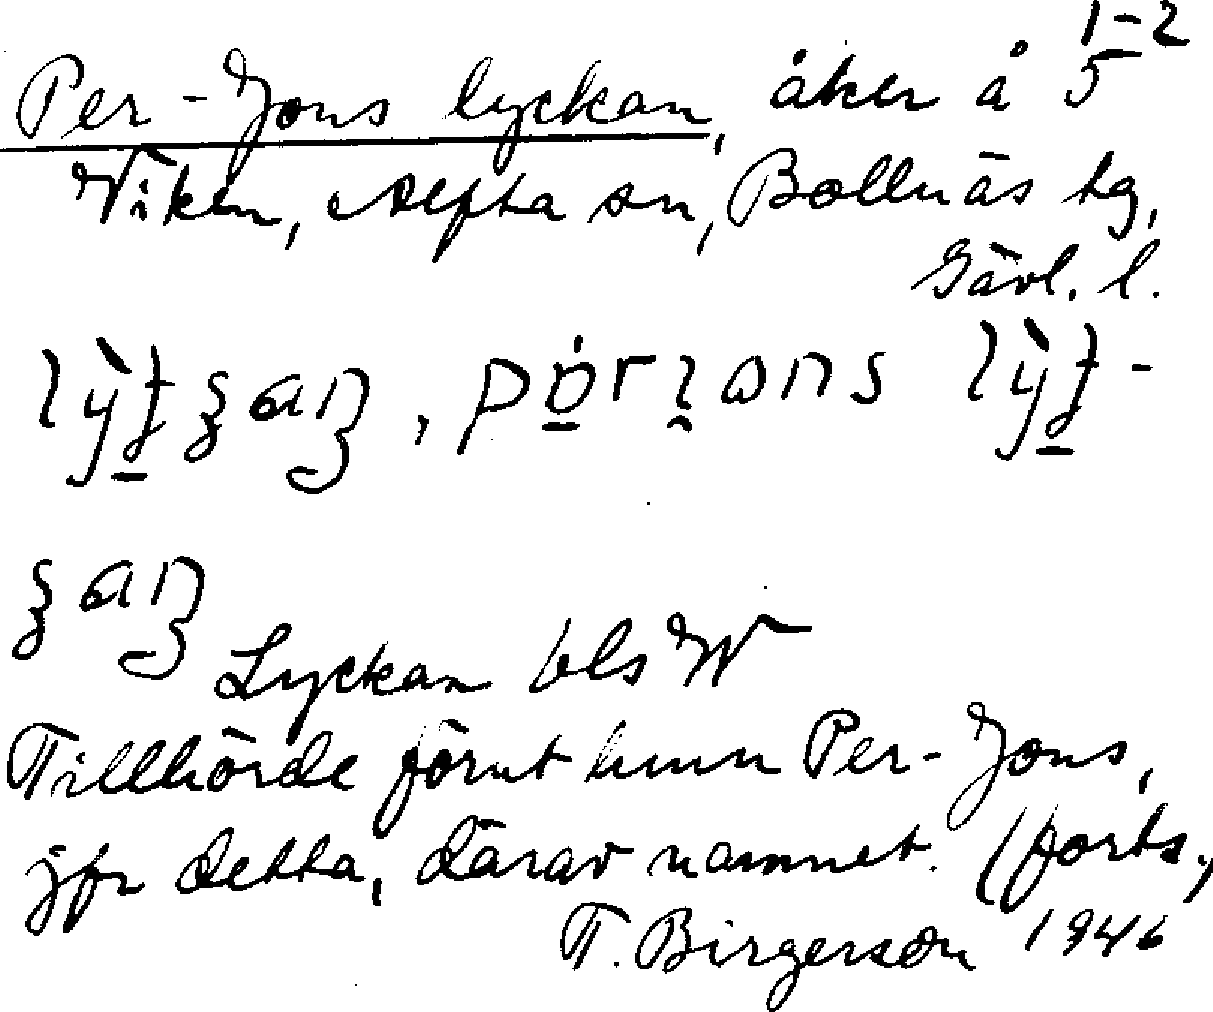 1-2
Per-Jons lyckan, åker å 5
Viken, Alfta sn, Bollnäs tg,
Gävl. l.
Lyckan bls W
Tillhörde förut hmn Per-Jons,
jfr detta, därav namnet. (forts.)
T. Birgerson 1946